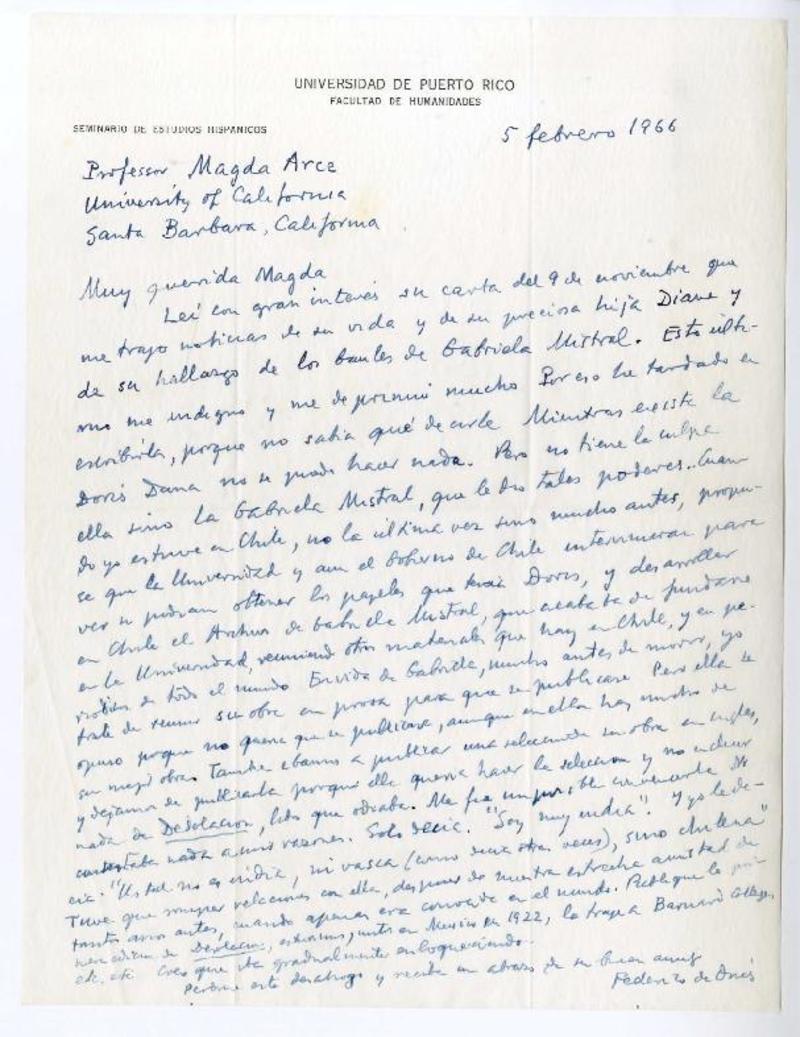 UNIVERSIDAD DE PUERTO RICO
FACULTAD DE HUMANIDADES
SEMINARIO DE ESTUDIOS HISPANICOS
5 febrero 1966
Professor Magda Arce
University of California
Santa Barbara, California
Muy querida Magda
Leí con gran interés su carta del 9 de noviembre que
me trajo noticias de su vida y de su preciosa hija Diane y
de su hallazgo de los baules de Gabriela Mistral. Esto últi-
mo me indignó y me deprimió mucho Por eso he tardado en
escribirla, porque no sabía qué decirle Mientras exista la
Doris Dana no se puede hacer nada. Pero no tiene la culpa
ella sino la Gabriela Mistral, que le dio tales poderes. Cuan-
do yo estuve en Chile, no la última vez sino mucho antes, propu-
se que la Universidad y aun el Gobierno de Chile intervinieran para
ver si podían obtener los papeles que tenía Doris, y desarrollar
en Chile el Archivo de Gabriela Mistral, que acababa de fundarse
en la Universidad, reuniendo otros materiales que hay en Chile, y en pe-
riódicos de todo el mundo En vida de Gabriela, mucho antes de morir, yo
traté de reunir su obra en prosa para que se publicase Pero ella se
opuso porque no quería que se publicara, aunque en ella hay mucho de
su mejor obra. También íbamos a publicar una selección de su obra en inglés,
y dejamos de publicarla porque ella quería hacer la selección y no incluir
nada de Desolación, libro que odiaba. Me fue imposible convencerla No
contestaba nada a mis razones. Solo decía. "Soy muy india". Y yo le de-
cía. "Usted no es india, ni vasca (como decía otras veces), sino chilena"
Tuve que romper relaciones con ella, después de nuestra estrecha amistad de
tantos años antes, cuando apenas era conocida en el mundo. Publiqué la pri-
mera edición de Desolación, estuvimos juntos en Mexico en 1922, la traje a Barnard College,
etc. etc. Creo que iba gradualmente enloqueciendo.
Perdone este desahogo y reciba un abrazo de su buen amigo
Federico de Onís